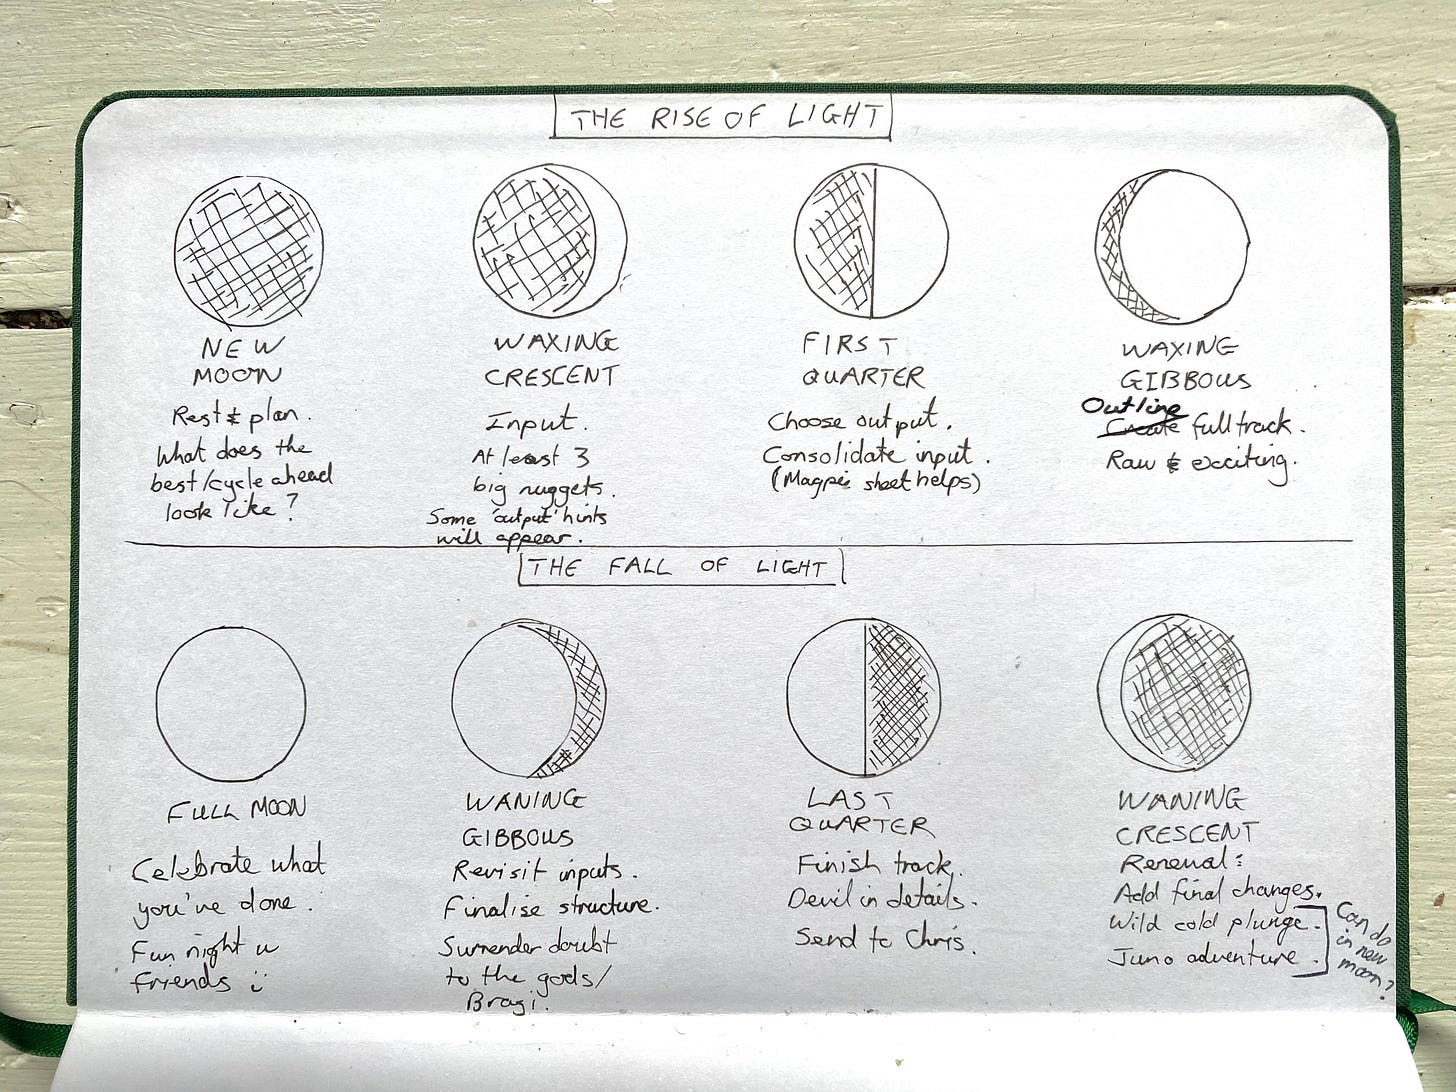 THE RISE OF LIGHT
NEW
MOON
Rest & plan.
What does the
best/cycle ahead
look like?
WAXING
CRESCENT
Input.
At least 3
big nuggets.
Some 'output' hints
will appear.
FIRST
QUARTER
Choose output.
Consolidate input.
(Magpie sheet helps)
WAXING
GIBBOUS
Outline
Create full track.
Raw & exciting.
THE FALL OF LIGHT
FULL MOON
Celebrate what
you've done.
Fun night w
friends :)
WANING
GIBBOUS
Revisit inputs.
Finalise structure.
Surrender doubt
to the gods/
Bragi.
LAST
QUARTER
Finish track.
Devil in details.
Send to Chris.
WANING
CRESCENT
Renewal:
Add final changes.
Wild cold plunge.
Juno adventure.
Can do
in new
moon?